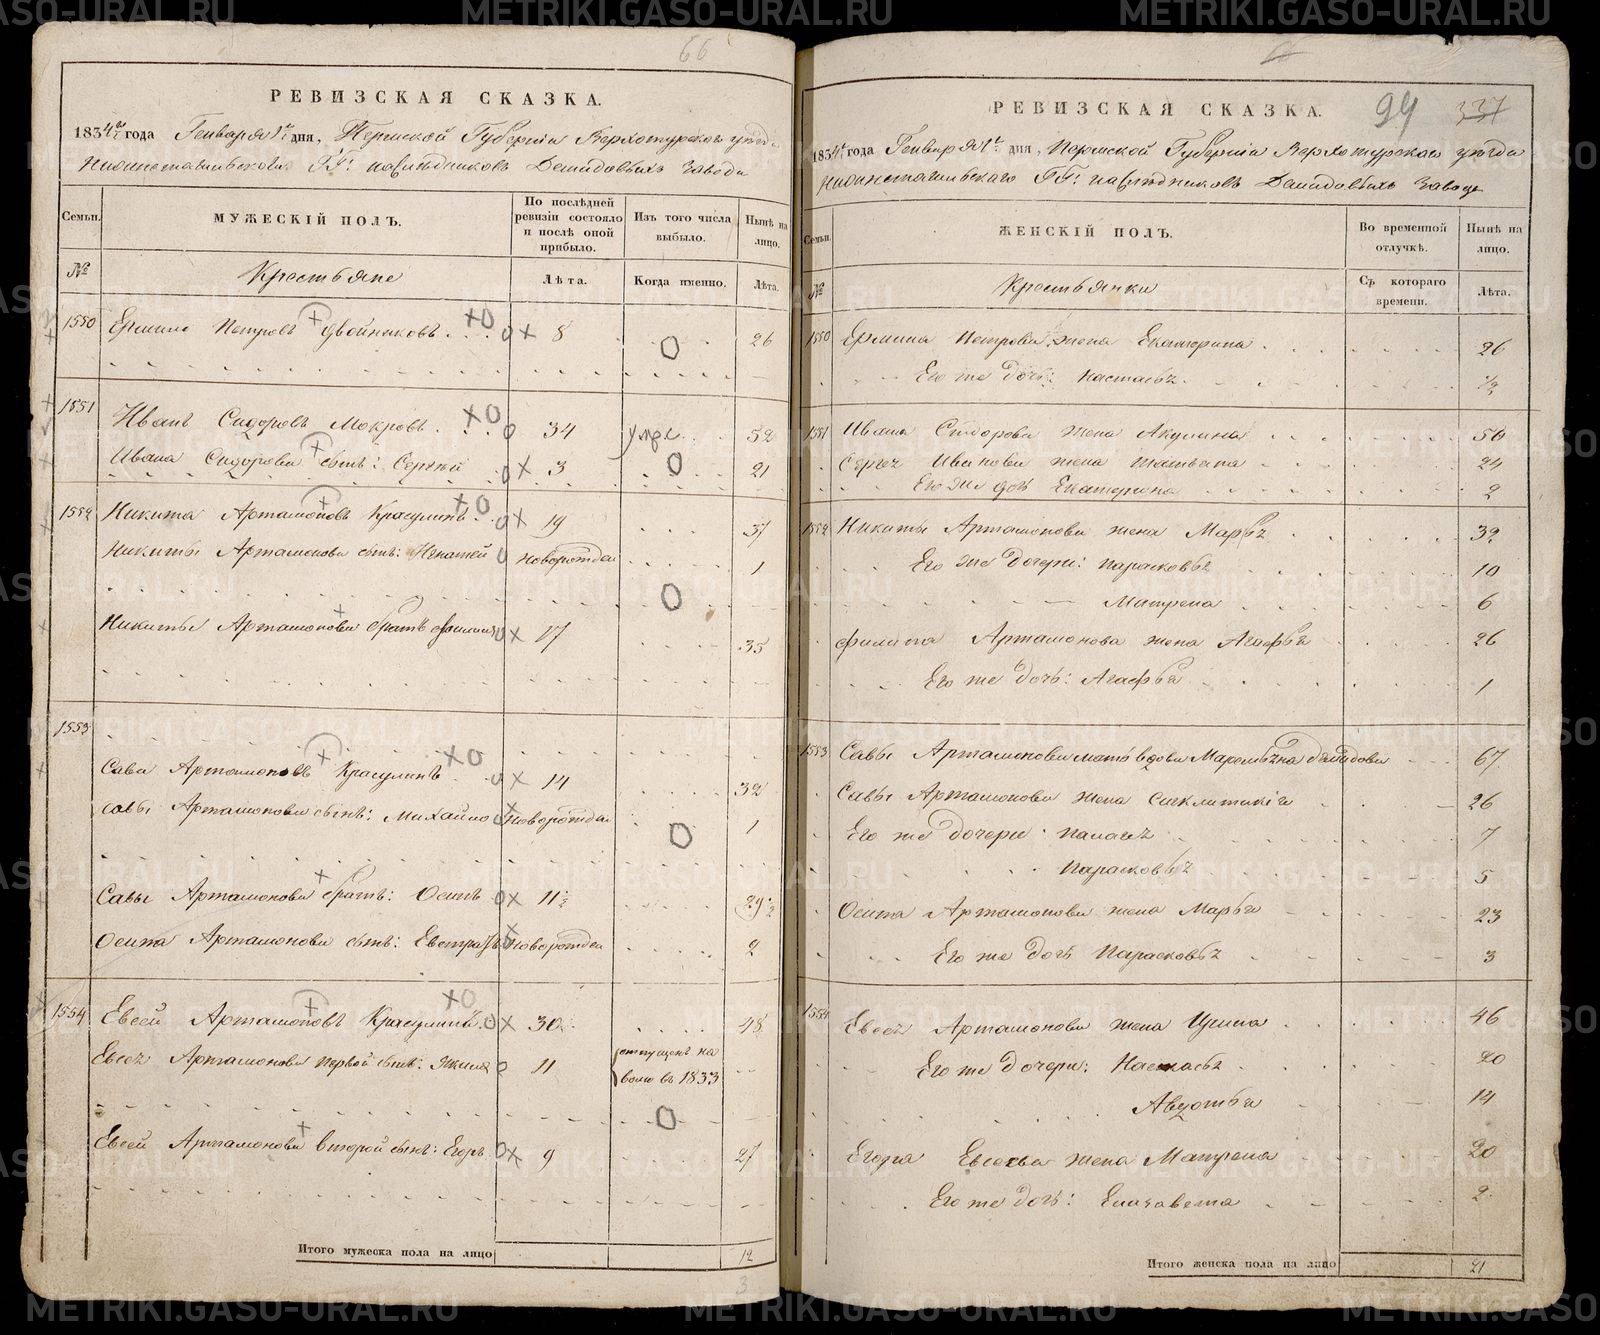 66
РЕВИЗСКАЯ СКАЗКА.
1834го года Генваря 1го дня, Пермской Губернiи Верхотурского уезда
Нижнетагильского ГГ: наследниковъ Демидовыхъ Завода
Семьи.
МУЖЕСКIЙ ПОЛЪ.
По послѣдней ревизiи состояло и послѣ оной прибыло.
Изъ того числа выбыло.
Нынѣ на лицо.
№
Крестьяне
Лѣта.
Когда именно.
Лѣта.
1550 Ермило Петровъ Двойниковъ 8 26
1551 Иванъ Сидоровъ Мокровъ 34 умре 52
Ивана Сидорова сынъ: Сергей 3 21
1552 Никита Артамоновъ Красулинъ 19 37
Никиты Артамонова сынъ: Игнатей новорожден 1
Никиты Артамонова братъ Филипъ 17 35
1553
Сава Артамоновъ Красулинъ 14 32
Савы Артамонова сынъ: Михайло новорожден 1
Савы Артамонова братъ: Осипъ 11½ 29½
Осипа Артамонова сынъ: Евстрафъ новорожден 2
1554 Евсей Артамоновъ Красулинъ 30 48
Евсея Артамонова первой сынъ: 11 отпущенъ на волю въ 1833
Евсей Артамонова второй сынъ: Егоръ 9 27
Итого мужеска пола на лицо 12
3
РЕВИЗСКАЯ СКАЗКА.
94 337
1834го года Генваря 1го дня, Пермской Губернiи Верхотурского уезда
Нижнетагильскаго ГГ: наследниковъ Демидовыхъ Заводе
Семьи.
ЖЕНСКIЙ ПОЛЪ.
Во временной отлучкѣ.
Нынѣ на лицо.
№
Крестьянки
Съ котораго времени.
Лѣта.
1550 Ермила Петрова жена Екатерина 26
Его же дочь: Настасья ½
1551 Ивана Сидорова жена Акулина 50
Сергея Иванова жена Татьяна 24
Его же дочь Екатерина 2
1552 Никиты Артамонова жена Марья 32
Его же дочери: Парасковья 10
Матрена 6
Филипа Артамонова жена Агафья 26
Его же дочь: Агафья 1
1553 Савы Артамонова мать вдова Маремьяна Давыдова 67
Савы Артамонова жена Сиклитикiя 26
Его же дочери: Палагея 7
Парасковья 5
Осипа Артамонова жена Марья 23
Его же дочь Парасковья 3
1554 Евсея Артамонова жена Ирина 46
Его же дочери: Настасья 20
Авдотья 14
Егора Евсеева жена Матрена 20
Его же дочь: Елизавета 2
Итого женска пола на лицо 21
METRIKI.GASO-URAL.RU